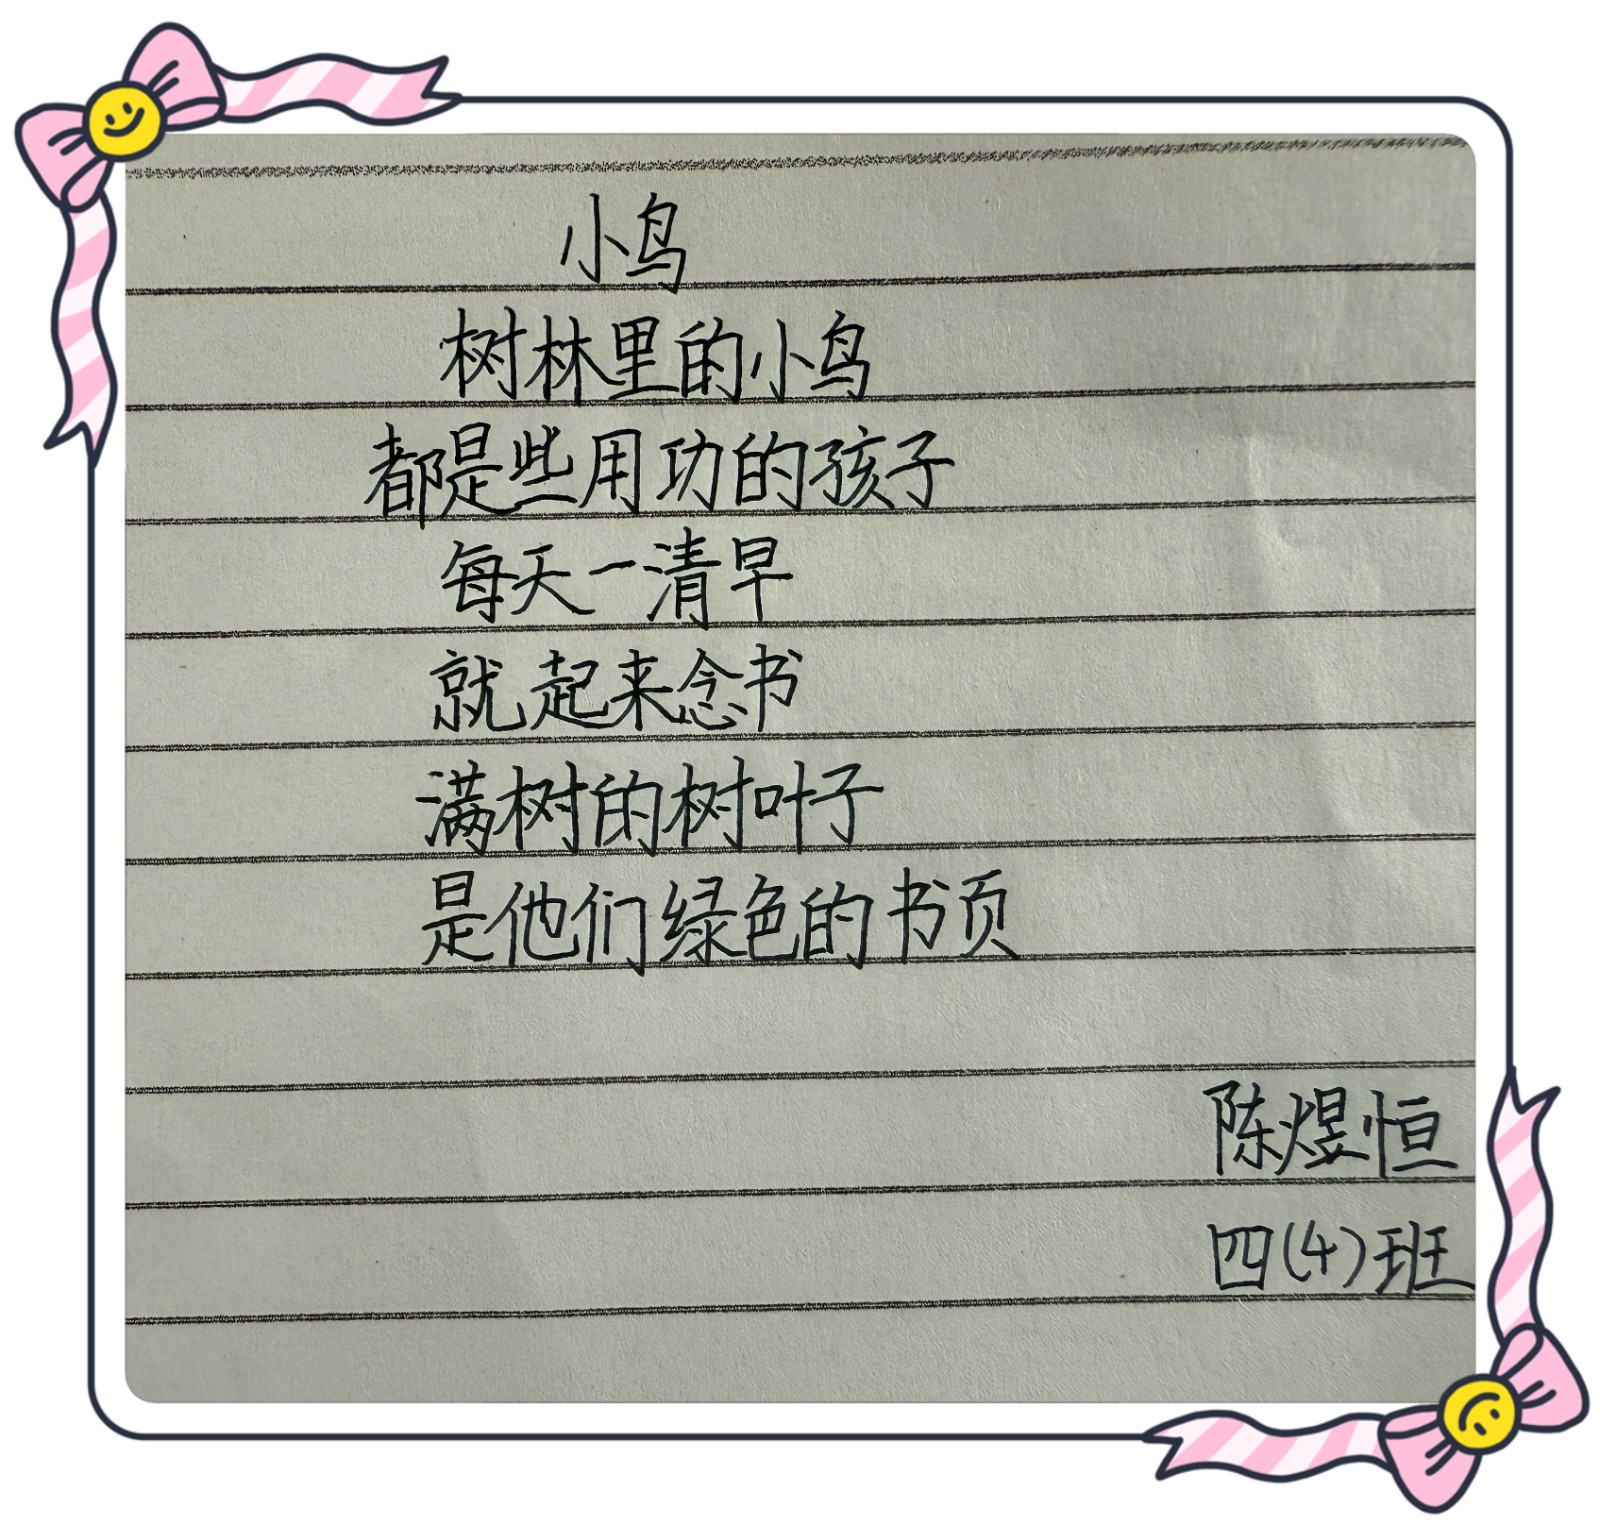 小鸟
树林里的小鸟
都是些用功的孩子
每天一清早
就起来念书
满树的树叶子
是他们绿色的书页
陈煜恒
四(4)班